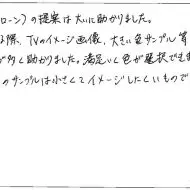 ローン)の提案は大いに助かりました。
る際、TVのイメージ画像、大きい色サンプル等
が多く助かりました。満足いく色が選択でき
のサンプルは小さくてイメージしにくいもので